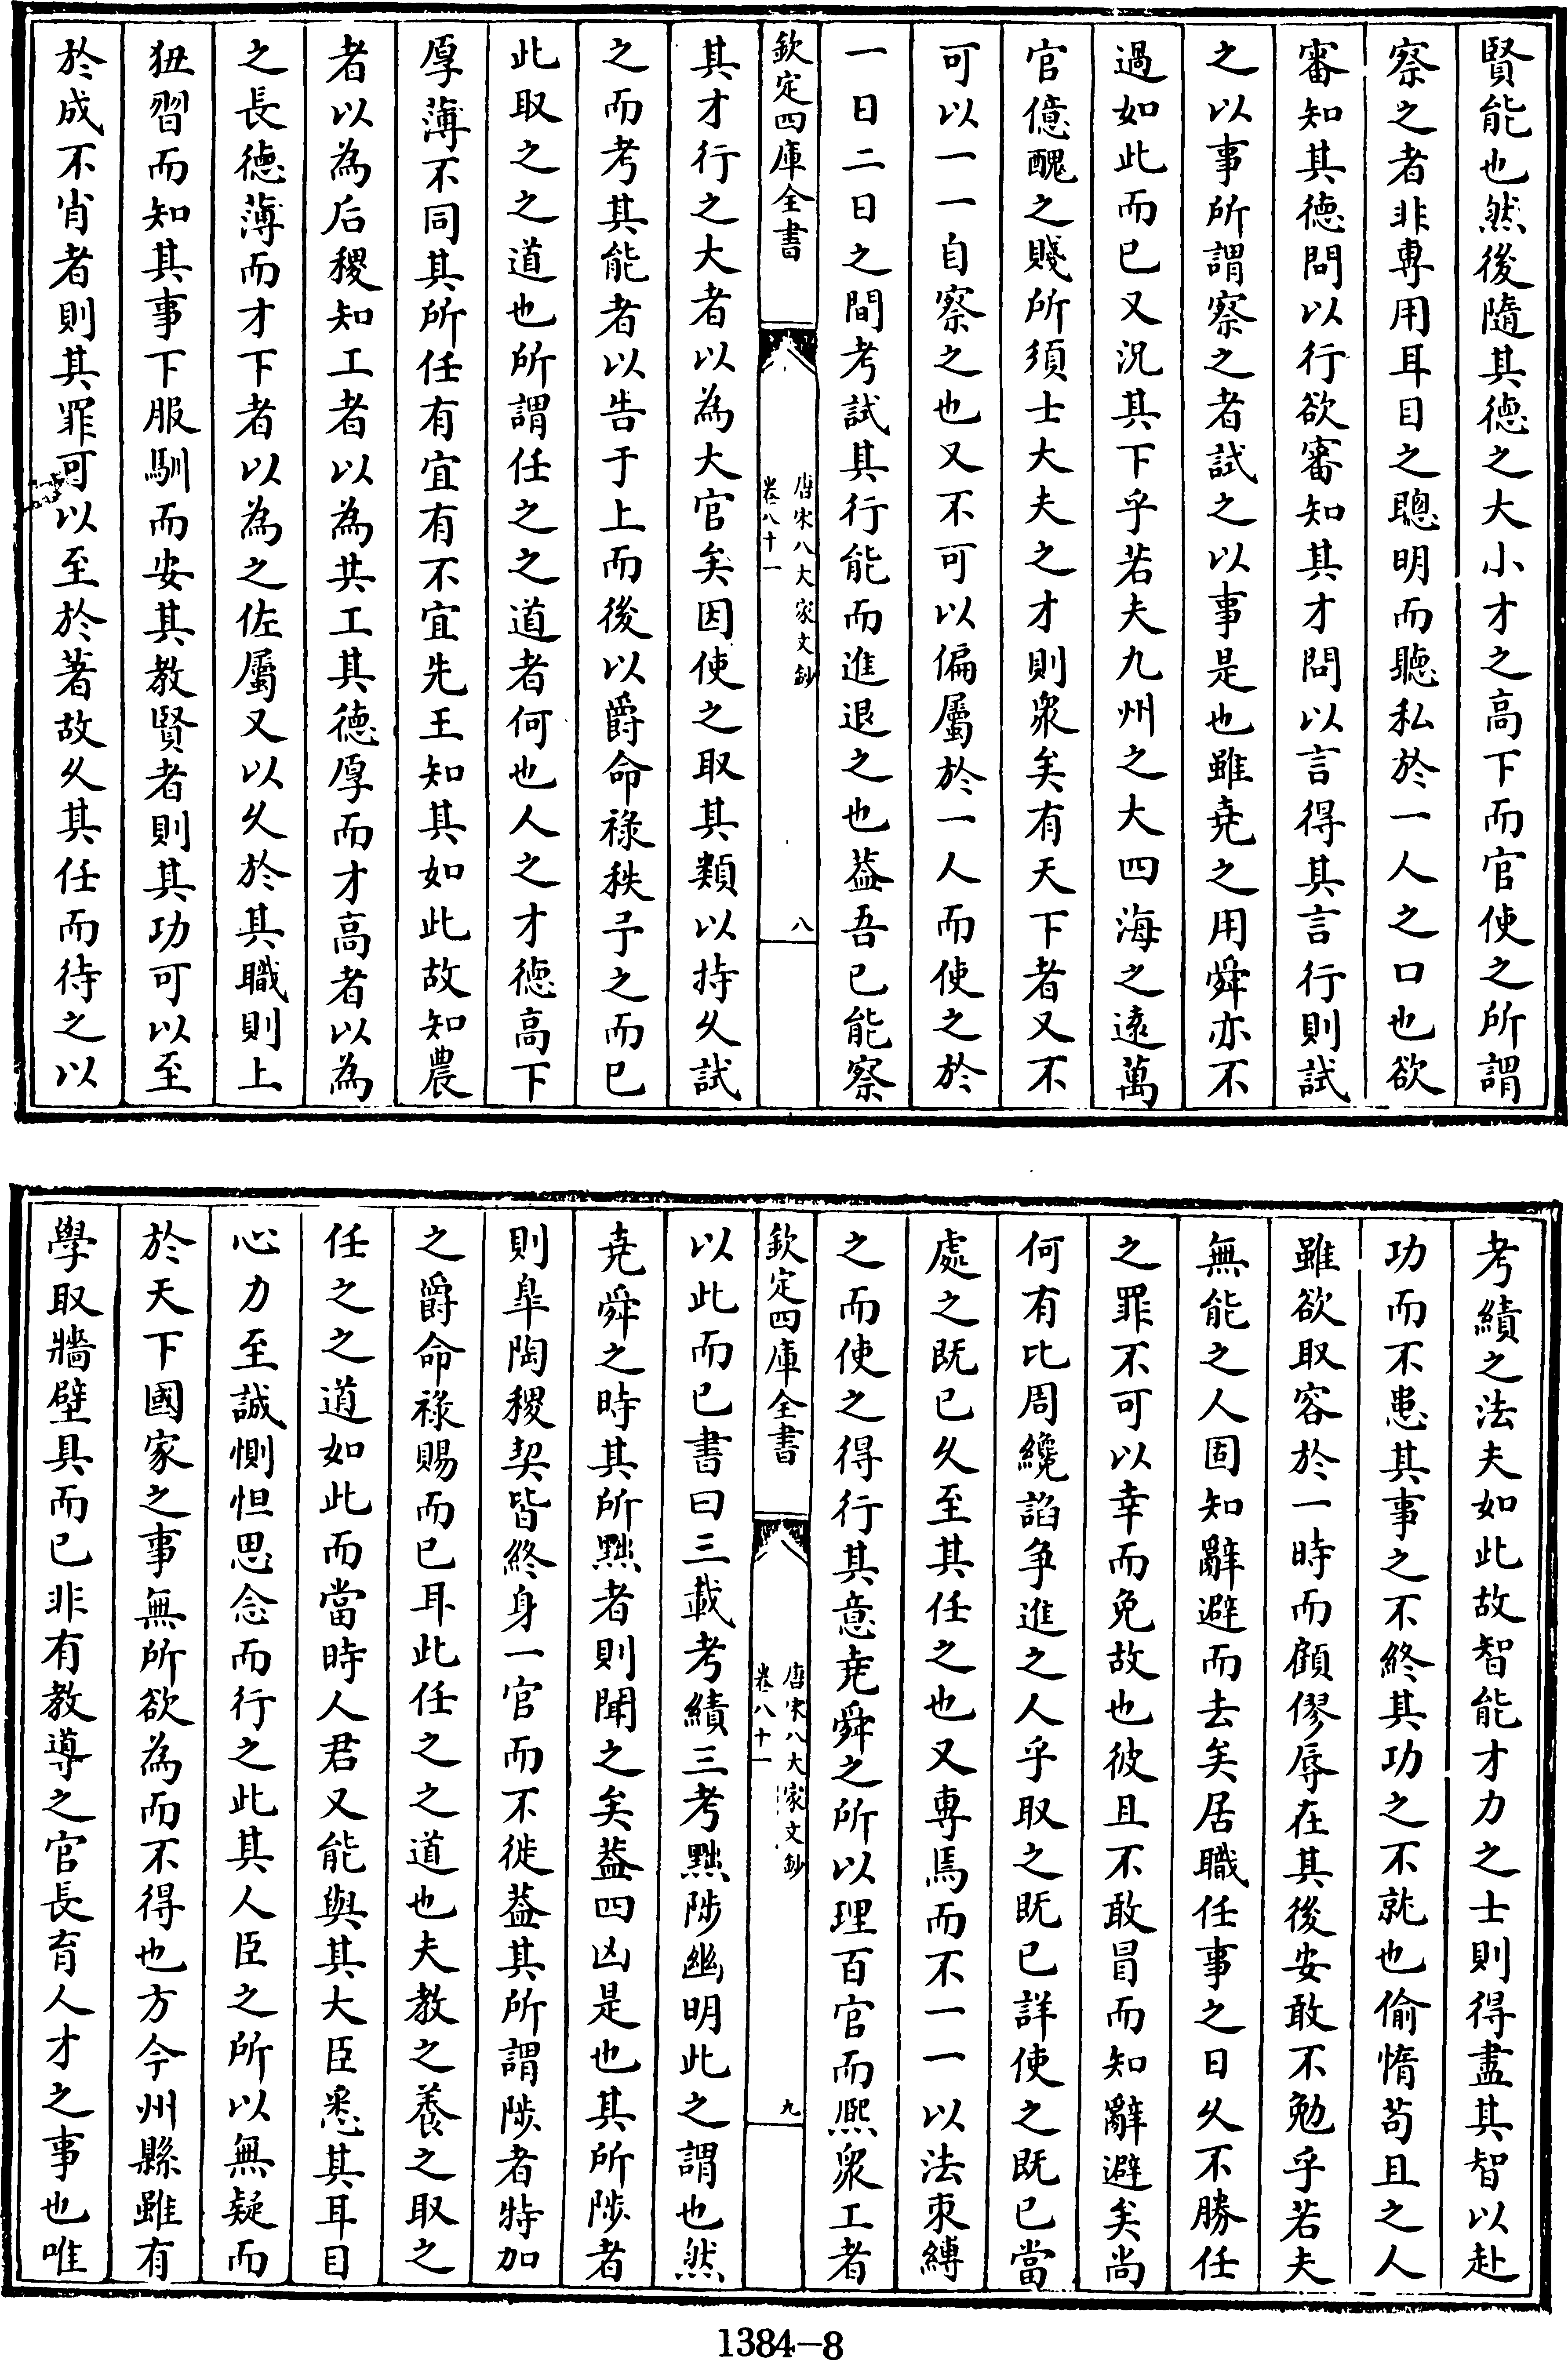 賢能也然後隨其德之大小才之高下而官使之所謂
察之者非專用耳目之聰明而聽私於一人之口也欲
審知其德問以行欲審知其才問以言得其言行則試
之以事所謂察之者試之以事是也雖堯之用舜亦不
過如此而已又況其下乎若夫九州之大四海之遠萬
官億醜之賤所須士大夫之才則衆矣有天下者又不
可以一一自察之也又不可以偏屬於一人而使之於
一日二日之間考試其行能而進退之也葢吾已能察
欽定四庫全書
唐宋八大家文鈔
卷八十一
八
其才行之大者以為大官矣因使之取其類以持久試
之而考其能者以告于上而後以爵命祿秩予之而已
此取之之道也所謂任之之道者何也人之才德高下
厚薄不同其所任有宜有不宜先王知其如此故知農
者以為后稷知工者以為共工其德厚而才高者以為
之長德薄而才下者以為之佐屬又以久於其職則上
狃習而知其事下服馴而安其教賢者則其功可以至
於成不肖者則其罪可以至於著故久其任而待之以
考績之法夫如此故智能才力之士則得盡其智以赴
功而不患其事之不終其功之不就也偷惰苟且之人
雖欲取容於一時而顧僇辱在其後安敢不勉乎若夫
無能之人固知辭避而去矣居職任事之日久不勝任
之罪不可以幸而免故也彼且不敢冒而知辭避矣尚
何有比周纔諂爭進之人乎取之既已詳使之既已當
處之既已久至其任之也又專焉而不一一以法束縛
之而使之得行其意堯舜之所以理百官而熙衆工者
欽定四庫全書
唐宋八大家文鈔
卷八十一
九
以此而已書曰三載考績三考黜陟幽明此之謂也然
堯舜之時其所黜者則聞之矣葢四凶是也其所陟者
則臯陶稷契皆終身一官而不徙葢其所謂陟者特加
之爵命祿賜而已耳此任之之道也夫教之養之取之
任之之道如此而當時人君又能與其大臣悉其耳目
心力至誠惻怛思念而行之此其人臣之所以無疑而
於天下國家之事無所欲為而不得也方今州縣雖有
學取牆壁具而已非有教導之官長育人才之事也唯
1384-8